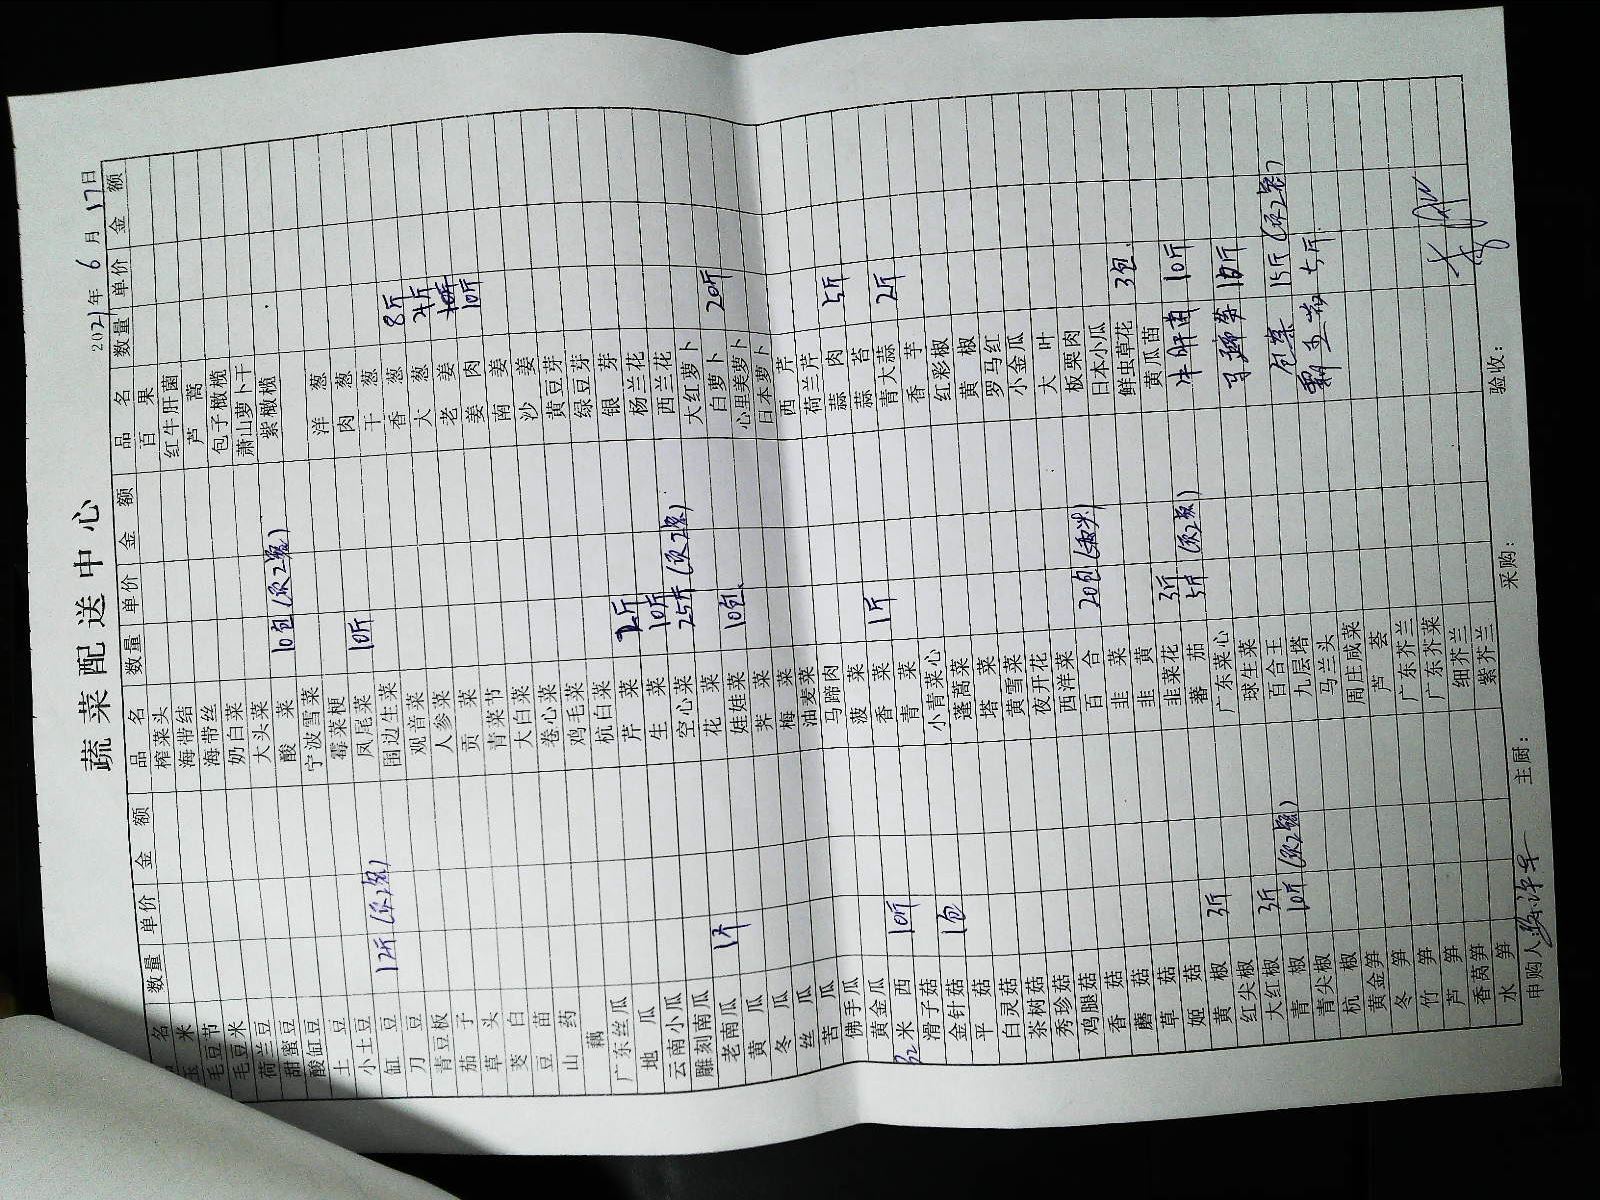 蔬菜配送中心
2021年6月17日
品名 数量 单价 金额
玉米
毛豆节
毛豆米
荷兰豆
甜蜜豆
酸缸豆
土豆
小土豆
缸豆 12斤
刀豆
青豆板
茄子
草头
茭白
豆苗
山药
藕
广东丝瓜
地瓜
云南小瓜
雕刻南瓜
老南瓜 1个
黄瓜
冬瓜
丝瓜
苦瓜
佛手瓜
黄金瓜
米西 10斤
滑子菇
金针菇 1包
平菇
白灵菇
茶树菇
秀珍菇
鸡腿菇
香菇
蘑菇
草菇
姬菇
黄椒 3斤
红尖椒
大红椒 3斤
青椒 10斤
青尖椒
杭椒
黄金笋
冬笋
竹笋
芦笋
香莴笋
水笋
品名 数量 单价 金额
榨菜头
海带结
海带丝
奶白菜
大头菜
酸菜 10包
宁波雪菜
霉菜梗
凤尾菜 10斤
围边生菜
观音菜
人参菜
贡菜
青菜节
大白菜
卷心菜
鸡毛菜
杭白菜
芹菜 2斤
生菜 10斤
空心菜 25斤
花菜
娃娃菜 10包
荠菜
梅菜
油麦菜
马蹄肉
菠菜
香菜 1斤
青菜
小青菜心
蓬蒿菜
塔菜
黄雪菜
夜开花
西洋菜
百合 20包
韭菜
韭黄
韭菜花 3斤
蕃茄 5斤
广东菜心
球生菜
百合王
九层塔
马兰头
周庄咸菜
芦荟
广东芥兰
广东芥菜
细芥兰
紫芥兰
品名 数量 单价 金额
百果
红牛肝菌
芦蒿
包子橄榄
萧山萝卜干
紫橄榄
洋葱
肉葱
干葱
香葱 8斤
大葱
老姜 10斤
姜肉 10斤
南姜
沙姜
黄豆芽
绿豆芽
银芽
杨兰花
西兰花
大红萝卜
白萝卜 20斤
心里美萝卜
日本萝卜
西芹
荷兰芹
蒜肉 5斤
蒜苔
青大蒜 2斤
香芋
红彩椒
黄椒
罗马红
小金瓜
大叶
板栗肉
日本小瓜
鲜虫草花 3包
黄瓜苗
牛肝菌 10斤
10斤
包菜 15斤
5斤
申购人: 主厨: 采购: 验收: